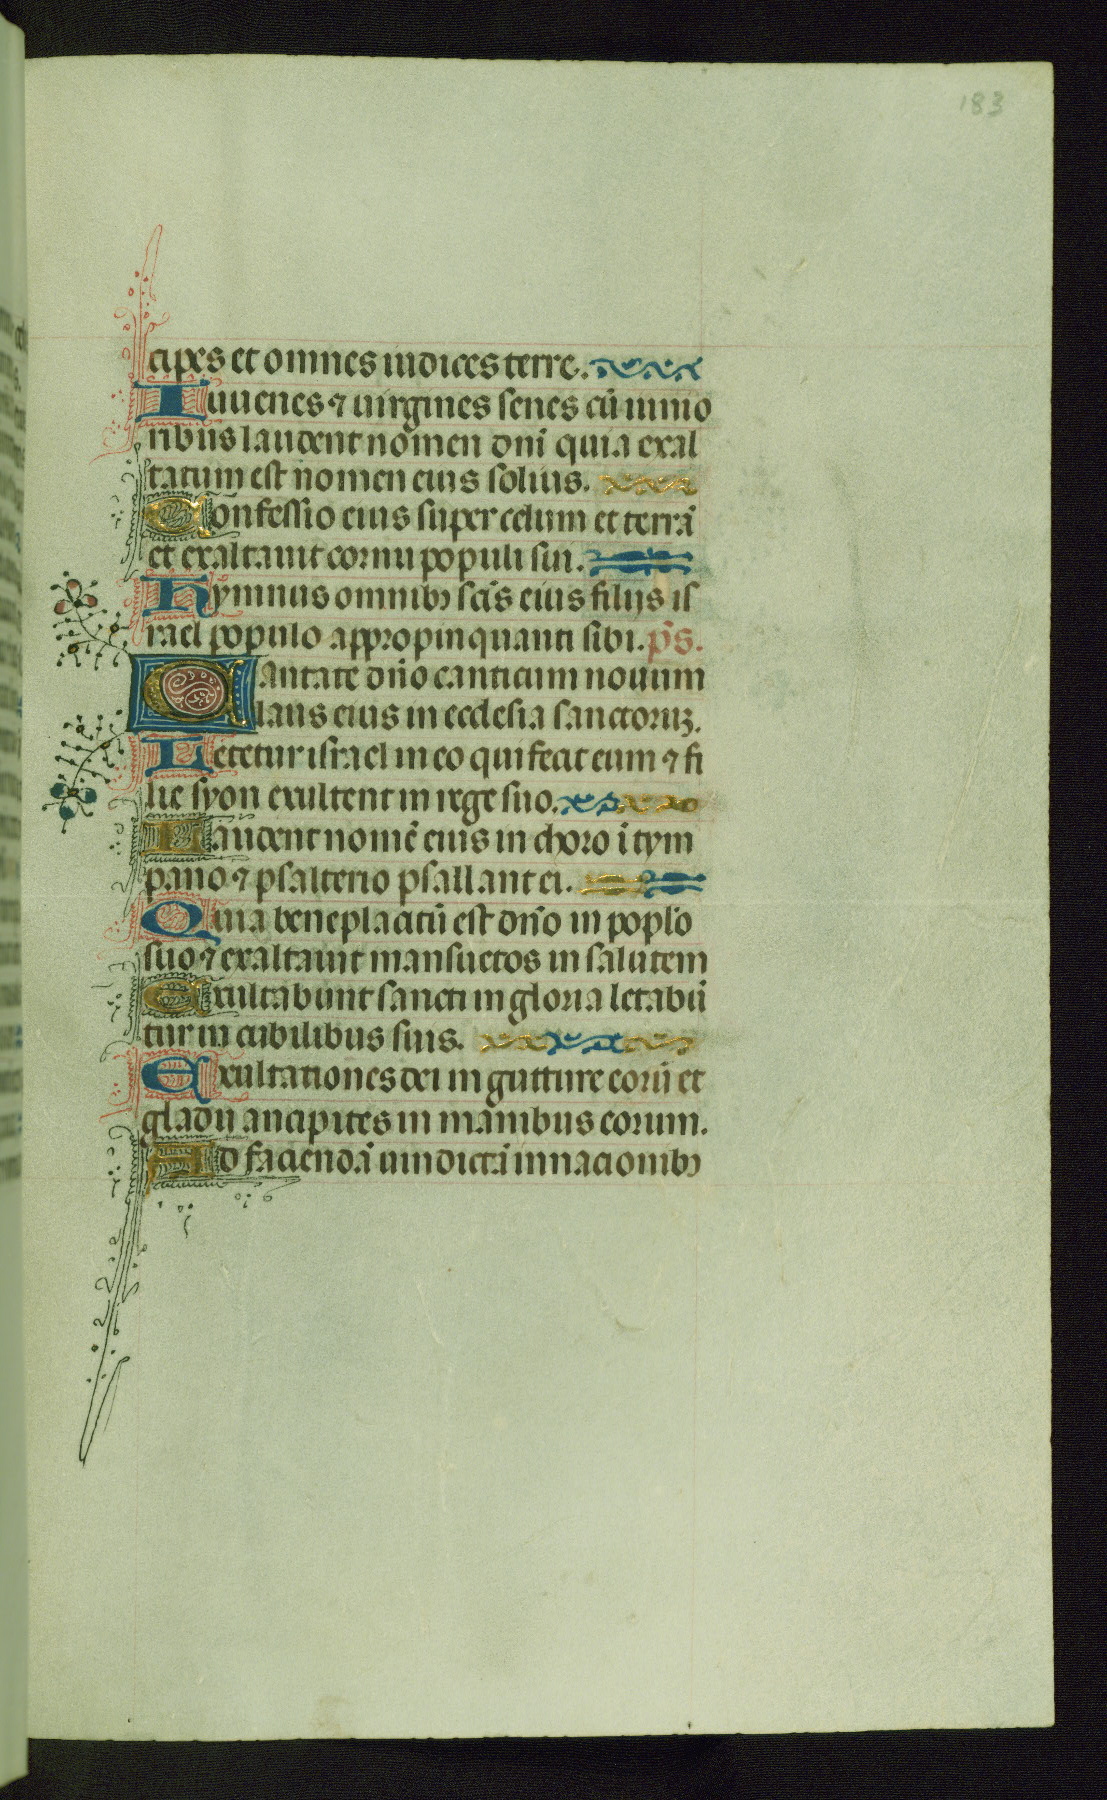 183
cipes et omnes iudices terre.
Iuuenes ⁊ uirgines senes cū iunio
ribus laudent nomen dn̄i quia exal
tatum est nomen eius solius.
Confessio eius super celum et terrā
et exaltauit cornu populi sui.
Hymnus omnibꝫ sc̄is eius filijs is
rael populo appropinquanti sibi. p̄s.
Cantate dn̄o canticum nouum
laus eius in ecclesia sanctoruꝫ.
Letetur israel in eo qui fecit eum ⁊ fi
lie syon exultent in rege suo.
Laudent nomē eius in choro ī tym
pano ⁊ psalterio psallant ei.
Quia beneplacitū est dn̄o in popl̄o
suo ⁊ exaltauit mansuetos in salutem
Exultabunt sancti in gloria letabū
tur in cubilibus suis.
Exultationes dei in gutture eorū et
gladii ancipites in manibus eorum.
Ad faciendā uindictā in nacionibꝫ